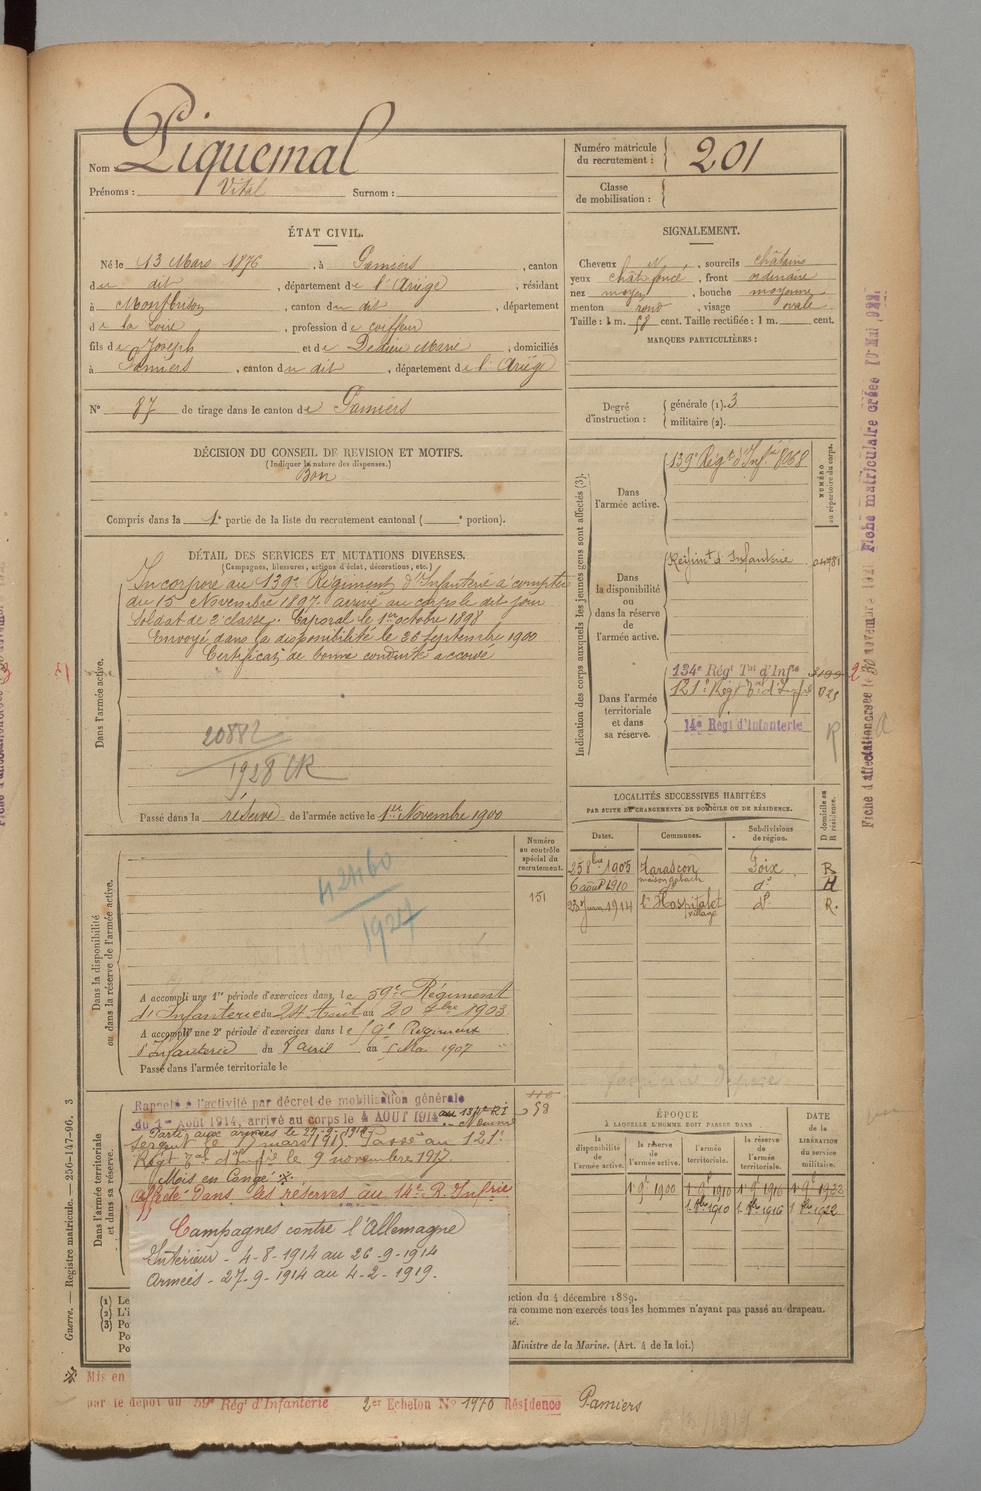 Nom : Piquemal
Prénoms : Vital Surnom :
Numéro matricule
du recrutement : 201
Classe
de mobilisation :
ÉTAT CIVIL.
Né le 13 Mars 1876, à Pamiers, canton
du dit, département de l'Ariège, résidant
à Montbrison, canton du dit, département
de la Loire, profession de coiffeur
fils de Joseph et de Dedieu Marie, domiciliés
à Pamiers, canton du dit, département de l'Ariège
N° 87 de tirage dans le canton de Pamiers
SIGNALEMENT.
Cheveux N, sourcils châtains
yeux chât foncé, front ordinaire
nez moyen, bouche moyenne
menton rond, visage ovale
Taille : 1 m. 58 cent. Taille rectifiée : 1 m. cent.
MARQUES PARTICULIÈRES :
Degré
d'instruction :
générale (1). 3
militaire (2).
DÉCISION DU CONSEIL DE REVISION ET MOTIFS.
(Indiquer la nature des dispenses.)
Bon
Compris dans la 1e partie de la liste du recrutement cantonal ( e portion).
DÉTAIL DES SERVICES ET MUTATIONS DIVERSES.
(Campagnes, blessures, actions d'éclat, décorations, etc.)
Dans l'armée active.
Incorporé au 139e Régiment d'Infanterie à compter
du 15 Novembre 1897. arrivé au corps le dit jour
Soldat de 2e classe. Caporal le 1er octobre 1898
Envoyé dans la disponibilité le 26 septembre 1900
Certificat de bonne conduite accordé
20882
1928 CR
Passé dans la réserve de l'armée active le 1er Novembre 1900
Indication des corps auxquels les jeunes gens sont affectés (3).
NUMÉRO
au répertoire du corps.
Dans
l'armée active.
139e Régt d'Infie 8068
Dans
la disponibilité
ou
dans la réserve
de
l'armée active.
Régimt d'Infanterie 04781
Dans l'armée
territoriale
et dans
sa réserve.
134e Régt Tal d'Infie
121e Régt Tal d'Infie
14e Régt d'Infanterie
R
LOCALITÉS SUCCESSIVES HABITÉES
PAR SUITE DE CHANGEMENTS DE DOMICILE OU DE RÉSIDENCE.
D domicile ou
R résidence.
Dates. Communes. Subdivisions
de région.
25 8bre 1905 Tarascon Foix R
maison Gabach
6 août 1910 do H
23 Juin 1914 l'Hospitalet do R.
village
Dans la disponibilité
ou dans la réserve de l'armée active.
Numéro
au contrôle
spécial du
recrutement.
151
42460
1927
A accompli une 1re période d'exercices dans le 59e Régiment
d'Infanterie du 24 Août au 20 7bre 1903
A accompli une 2e période d'exercices dans le 59e Régiment
d'Infanterie du 8 avril au 5 Mai 1907
Passé dans l'armée territoriale le
Dans l'armée territoriale
et dans sa réserve.
Rappelé à l'activité par décret de mobilisation générale
du 1er Août 1914, arrivé au corps le 4 AOUT 1914 au 134e RI
Parti aux armées le 27-9-1914
Sergent le 17 mars 1915. Passé au 121e
Régt Tal d'Infie le 9 novembre 1917
Mois en Congé ※
Affecté dans les réserves au 14e R. Infrie
58
Campagnes contre l'Allemagne
Intérieur - 4-8-1914 au 26-9-1914
Armées - 27-9-1914 au 4-2-1919.
ÉPOQUE
À LAQUELLE L'HOMME DOIT PASSER DANS
DATE
de la
LIBÉRATION
du service
militaire.
la
disponibilité
de
l'armée active.
la réserve
de
l'armée active.
l'armée
territoriale.
la réserve
de
l'armée
territoriale.
1 9bre 1900 1 9bre 1910 1 9bre 1916 1 9bre 1922
1 8bre 1910 1 8bre 1916 1 8bre 1922
(1) Le
(2) L'i
(3) Po
Po
Po
ction du 4 décembre 1889.
ra comme non exercés tous les hommes n'ayant pas passé au drapeau.
Ministre de la Marine. (Art. 4 de la loi.)
Guerre. — Registre matricule. — 256-147-96. 3
※ Mis en
par le dépôt du 59e Régt d'Infanterie 2er Echelon N° 1970 Résidence Pamiers
Fiche d'affectation créée le 30 novembre 1921 Fiche matriculaire créée 10 Mai 1922